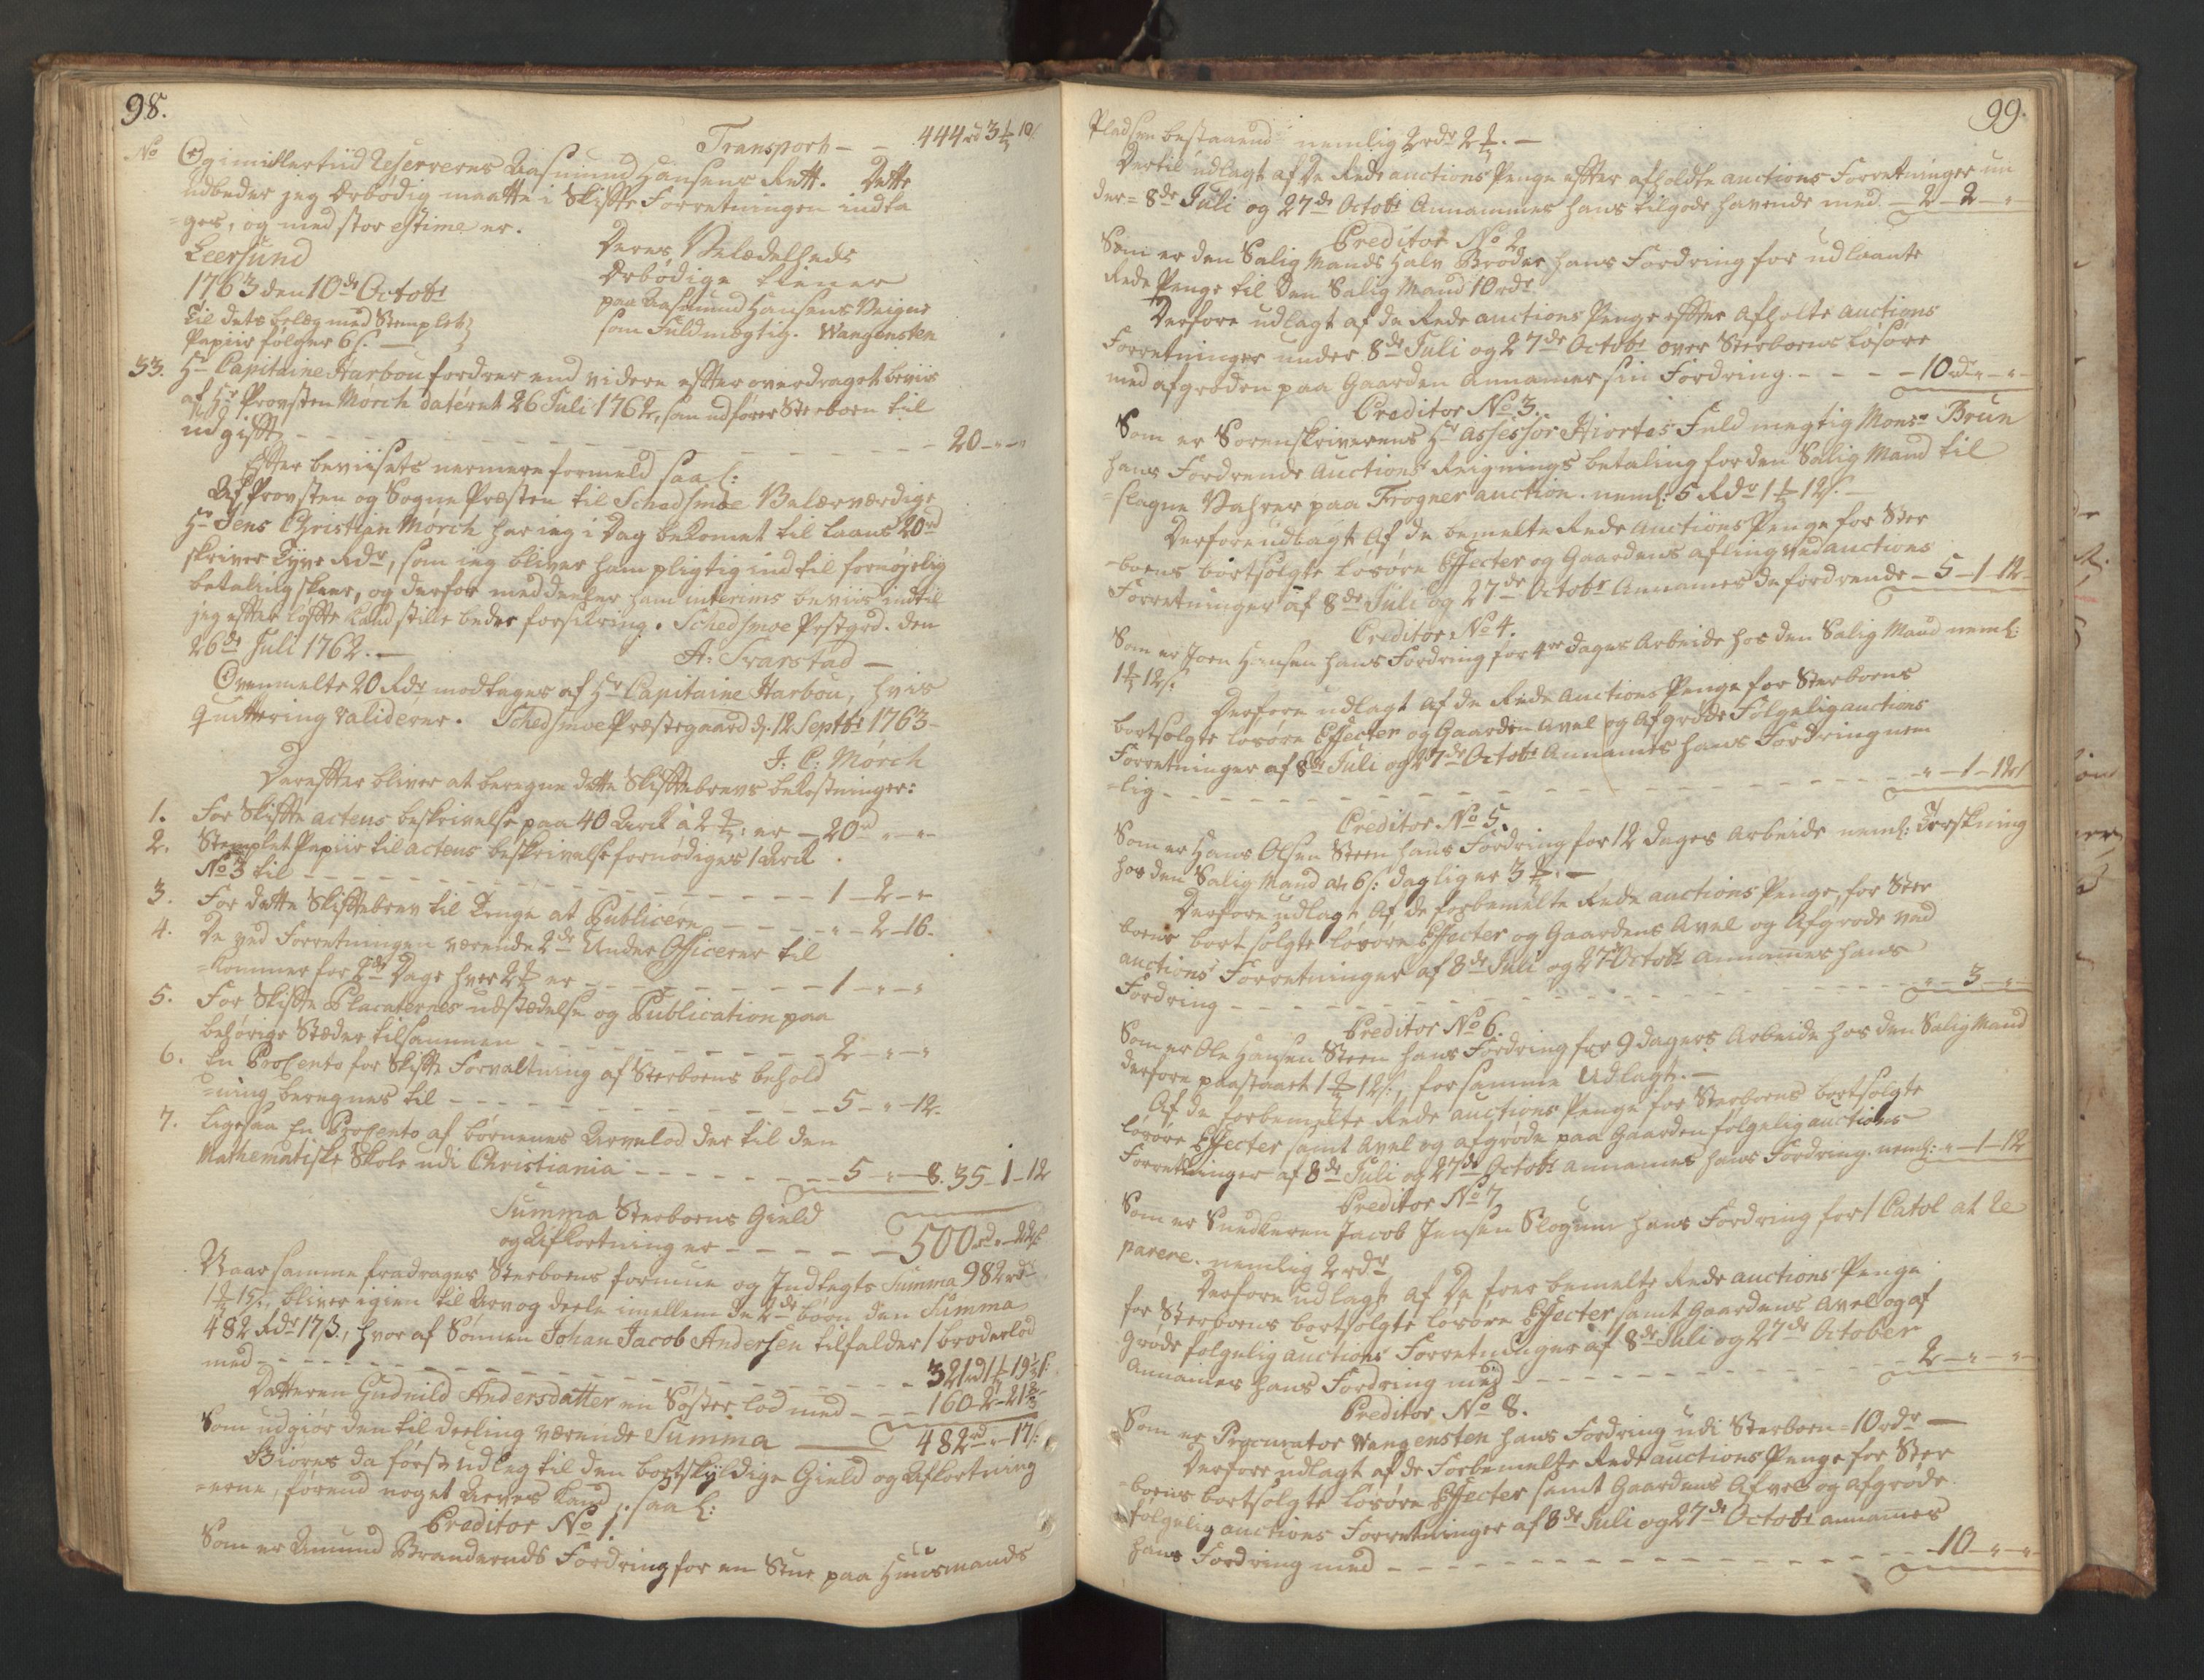 98.
Transport - - 444rd 3 ₰ 10
No Og imidlertiid Reserveres Aasmund Hansens Rett. Dette
udbeder jeg ærbødig maatte i Skifte Forretningen indta
=ges, og med stor estime er.
Leersund
1763 den 10de Octobr
til dets belæg med Stemplet
Papiir følger 6 s.
Deres Velædelheds
ærbødige tiener
paa Aasmund Hansens Veigne
som Fuldmegtig. Wangensten
33. Hr Capitaine Harbou fordrer end videre efter overdraget beviis
af Hr Provsten Mørch dateret 26 Juli 1762, som udfører Sterboen til
udgift - - - 20 - " - "
Efter beviisets nermere formeld saal:
Af Provsten og Sogne Præsten til Schedsmoe Velærværdige
Hr Jens Christian Mørch har ieg i Dag bekomet til laans 20rd
skriver Tyve Rdr, som ieg bliver ham pligtig ind til fornøjelig
betaling skeer, og derfor meddeeler ham interims beviis indtil
jeg efter løfte kand stille beder forsikring. Schedsmoe Prstgrd. den
26de Juli 1762. -
A: Trarstad -
Ovenmelte 20 Rdr modtages af Hr Capitaine Harbou, hvis
Quittering validerer. Schedsmoe Præstegaard d. 12 Septbr 1763 -
J. C: Mørch
Derefter bliver at beregne dette Skiftebrevs bekostninger:
1. For Skifte actens beskrivelse paa 40 Ark à 2 ₰: er - 20rd " - "
2. Stemplet Papiir til actens beskrivelse fornødiges 1 Ark
No 3 til - - - 1 - 2 - "
3. For dette Skiftebrev til Tinge at Publicere - - - " - 2 - 16.
4. De ved Forretningen værende 2de Under Officerer til
=kommer for 2de Dage hver 2 ₰ er - - - 1 - " - "
5. For Skifte Placaternes udstædelse og Publication paa
behørige Stæder tilsammen - - - 2 - " - "
6. En Procento for Skifte Forvaltning af Sterboens behold
=ning beregnes til - - - 5 - " - 12.
7. Ligesaa En Procento af børnenes Arvelod der til den
Mathematiske Skole udi Christiania - - - 5 - " - 8. 35 - 1 - 12
Summa Sterboens Gield
og Afkortning er - - - 500rd " - 22 s
Naar samme fradrages Sterboens formue og Indtegts Summa 982rdr
1 ₰ 15 s, bliver igien til Arv og deele imellem de 2de børn den Summa
482 Rdr 17 s., hvor af Sønnen Johan Jacob Andersen tilfalder 1 broderlod
med - - - 321rd 1 ₰ 19⅓ s:
Datteren Gudnild Andersdatter en Søster lod med - - - 160 - 2 - 21⅔
Som udgiør den til deeling værende Summa - 482rd " - 17 s:
Giøres da først udleg til den bortskyldige Gield og Afkortning
=erne, førend noget Arves kand, saal:
Creditor No 1.
Som er Amund Branderuds Fordring for en Stue paa Huusmands
99.
Pladsen bestaaend nemlig 2rdr 2 ₰. -
Dertil udlagt af De Rede auctions Penge efter afholdte auctions Forretninger un
der = 8de Juli og 27de Octobr Annammes hans tilgode havende med - 2 - 2 - "
Creditor No 2.
Som er den Salig Mands Halv Broder hans Fordring for udlaante
Rede Penge til Den Salig Mand 10rdr.
Derfore udlagt af de Rede auctions Penge efter Afholte auctions
Forretninger under 8de Juli og 27de Octobr over Sterboens løsøre
med afgrøden paa Gaarden Annames sin Fordring - - - 10rdr " - "
Creditor No 3.
Som er Sorenskriverens Hr assessor Hiortes Fuld megtig Monsr Brun
hans Fordrende auctions Reignings betaling for den Salig Mand til
=slagne Vahrer paa Frogner auction. neml: 5 Rdr 1 ₰ 12 s. -
Derfore udlagt Af de bemelte Rede auctions Penge for Ster
=boens bortsolgte løsøre Effecter og Gaardens afling ved auctions
Forretninger af 8de Juli og 27de Octobr Annames de fordrende - 5 - 1 - 12 -
Creditor No 4.
Som er Joen Hansen hans Fordring for 4re dages Arbeide hos den Salig Mand neml:
1 ₰ 12 s.
Derfore udlagt Af de Rede auctions Penge for Sterboens
bortsolgte løsøre Effecter og Gaarden Avel og Afgrøde Følgelig auctions
Forretninger af 8de Juli og 27de Octobr Annames hans Fordring nem
=lig - - - " - 1 - 12 s
Creditor No 5.
Som er Hans Olsen Steen hans Fordring for 12 dages Arbeide neml: Terskning
hos den Salig Mand à 6 s: daglig er 3 ₰. -
Derfore udlagt Af de forbemelte Rede auctions Penge, for Ster
boens bort solgte løsøre Effecter og Gaardens Avel og Afgrøde ved
auctions Forretninger af 8de Juli og 27de Octobr annames hans
Fordring - - - " - 3 - "
Creditor No 6.
Som er Ole Hansen Steen hans Fordring for 9 dagers Arbeide hos den Salig Mand
derfore paastaaet 1 ₰ 12 s:, for samme Udlagt. -
Af de forbemelte Rede auctions Penge for Sterboens bortsolgte
løsøre Effecter samt Avel og afgrøde paa Gaarden følgelig auctions
Forretninger af 8de Juli og 27de Octobr annames hans Fordring. neml: " - 1 - 12
Creditor No 7.
Som er Snedkeren Jacob Jensen Slogum hans Fordring for 1 Catol at Re
parere. nemlig 2rdr
Derfore udlagt af De foer bemelte Rede auctions Penge
for Sterboens bortsolgte løsøre Effecter samt Gaardens Avel og af
grøde følgelig auctions Forretninger af 8de Juli og 27de October
Annames hans Fordring med - - - 2 - " - "
Creditor No 8.
Som er Procurator Wangensten hans Fordring udi Sterboen = 10rdr -
Derfore udlagt af de Forbemelte Rede auctions Penge for Ster
=boens bortsolgte løsøre Effecter samt Gaardens Afvel og Afgrøde
følgelig auctions Forretninger af 8de Juli og 27de Octobr annames
hans Fordring med - - - 10 - " - "